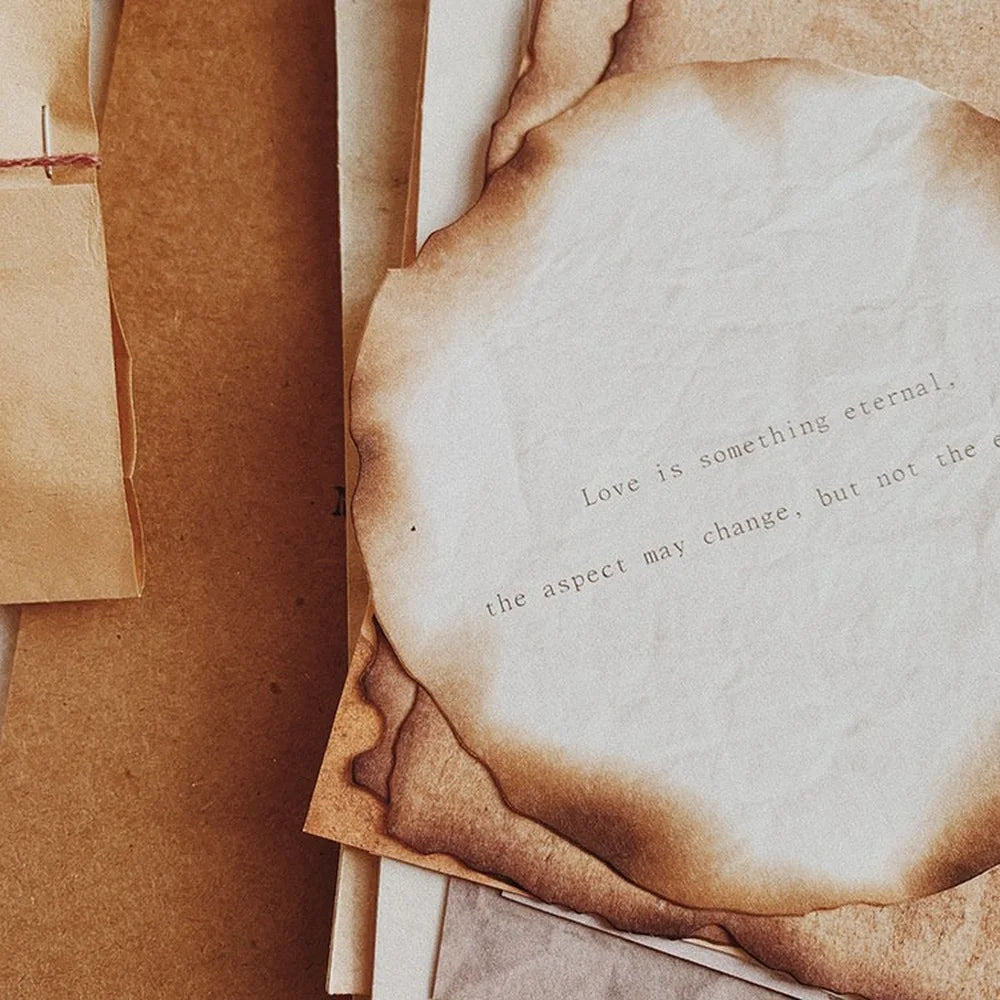 Love is something eternal,
the aspect may change, but not the